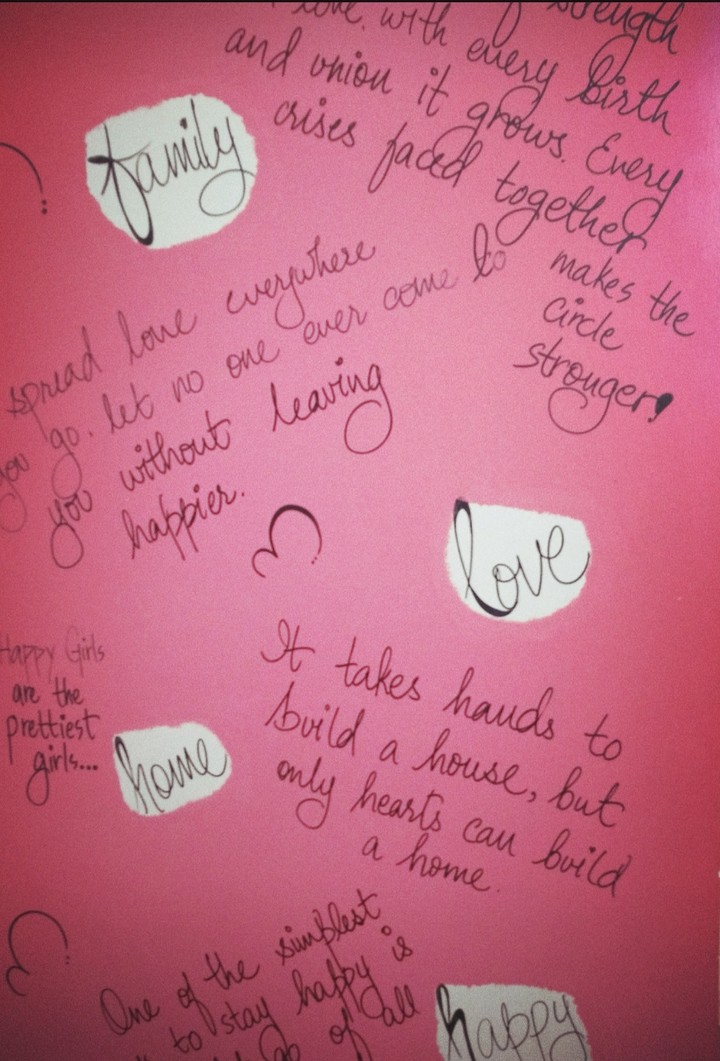 love. with strength
and union it grows. Every
every birth
crises faced together
makes the
circle
stronger!
family
spread love everywhere
you go. let no one ever come to
you without leaving
happier.
love
Happy Girls
are the
prettiest
girls...
home
It takes hands to
build a house, but
only hearts can build
a home.
One of the simplest
to stay happy is
of all
happy